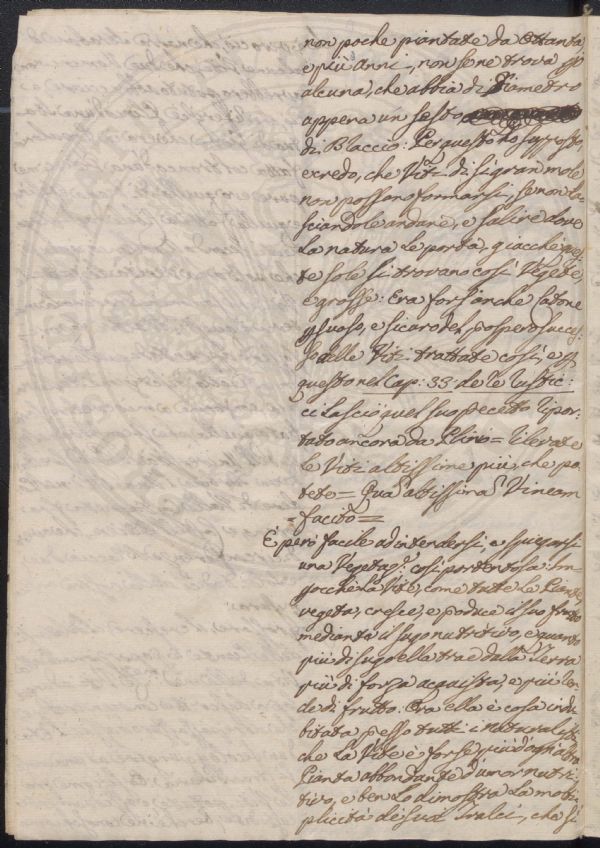 non poche piantate da Ottanta
e più anni, non se ne trova
alcuna, che abbia di Diametro
appena un sesto
di Braccio: Per questo ho supposto,
e credo, che Viti di sì gran mole
non possono formarsi, se non la-
sciandole andare, e salire dove
la natura le porta, giacchè que-
te sole si trovano così Vegete,
e grosse: Era forsi anche Catone
, e sicuro del prospero succes-
so delle Viti trattate così, e p
questo nel Cap: 33: de re rustic:
ci lasciò quel suo precetto ripor-
tato ancora da Plinio =
le Viti altissime più, che po-
tete = Quã altissimã Vineam
facito =
È però facile ad intendersi, e spiegarsi
una Vegetaz.e così portentosa: Im-
perocchè la Vite, come tutte le Piante,
vegeta, cresce, e produce il suo frutto
mediante il sugo nutritivo, e quanto
più di sugo ella trae dalla Terra
più di forza acquista, e più ren-
de di frutto: Ora ella è cosa indu-
bitata presso tutti i naturalisti,
che la Vite è forse più d'ogni altra
Pianta abbondante d'umor nutri-
tivo, e ben lo dimostra la molti-
plicità de suoi tralci, che si